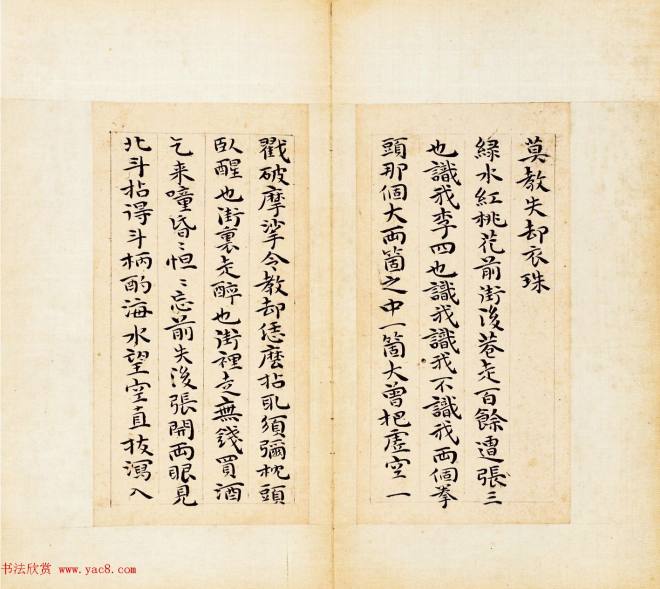 莫教失却衣珠
綠水紅桃花前街後巷走百餘遭張三
也識我李四也識我識我不識我兩個拳
頭那個大兩箇之中一箇大曾把虛空一
戳破摩挲令教却恁麼拈取須彌枕頭
臥醒也街裏走醉也街裡走無錢買酒
乞来噇昏〻怛〻忘前失後張開兩眼見
北斗拈得斗柄酌海水望空直抜瀉入
书法欣赏 www.yac8.com